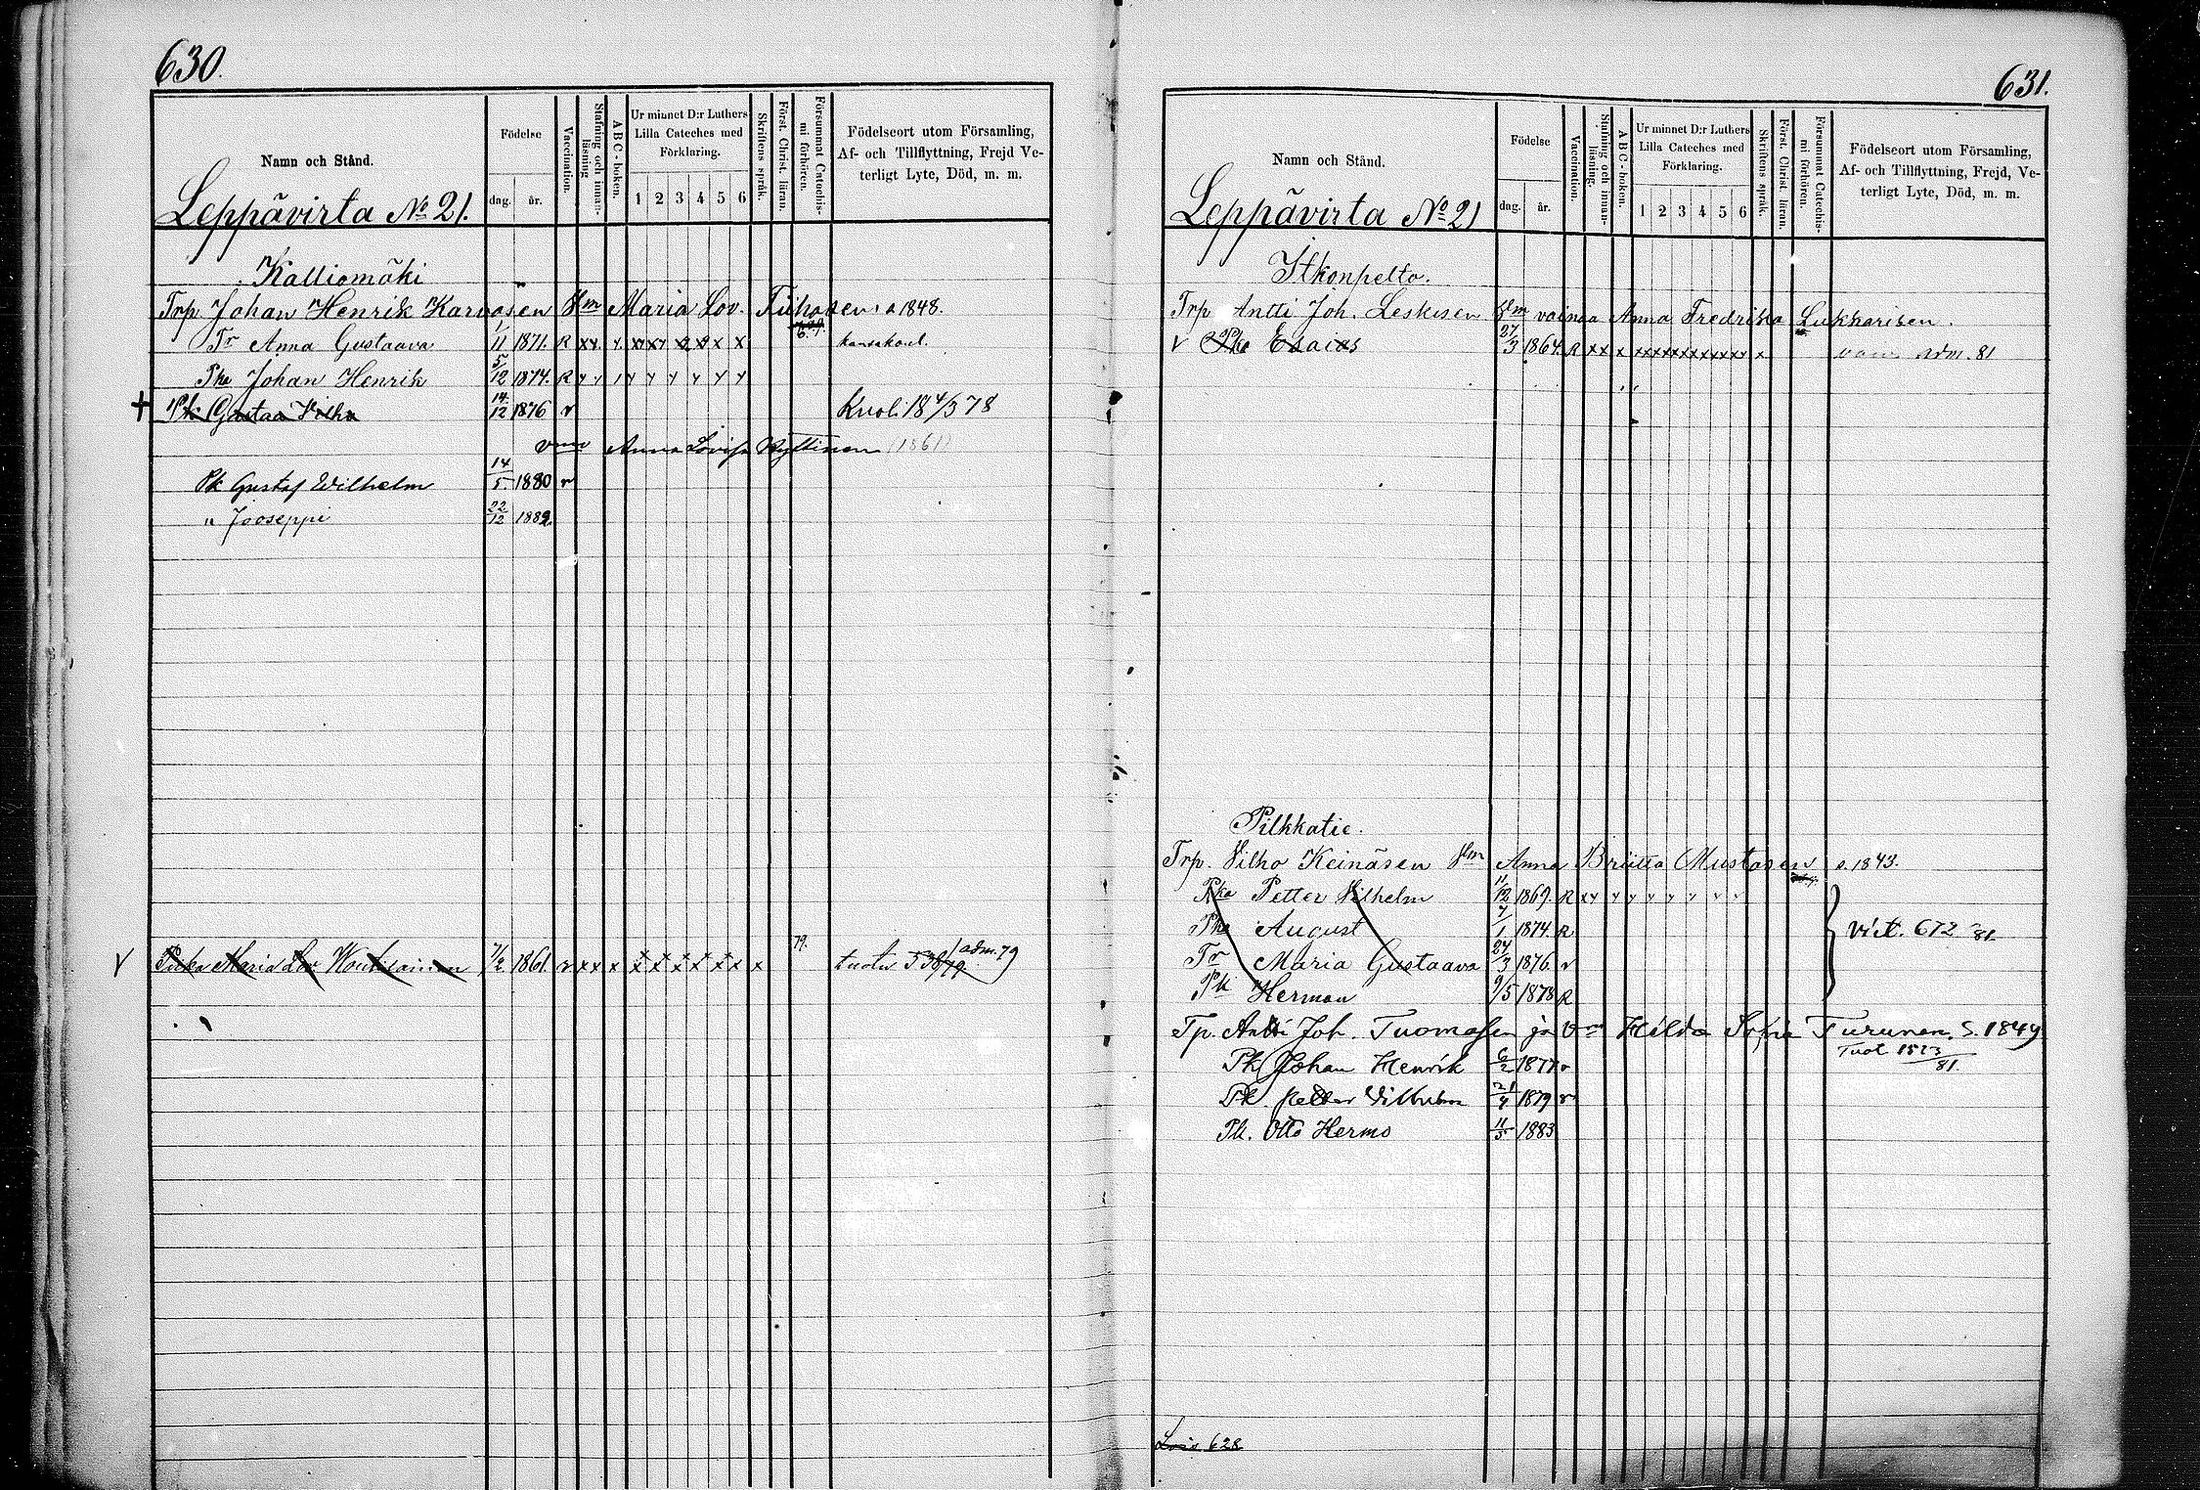 630.
Namn och Stånd.
Leppävirta No 21.
Födelse
dag. år.
Vaccination.
Stafning och innan-läsning
A B C-boken.
Ur minnet D:r Luthers
Lilla Cateches med
Förklaring.
1 2 3 4 5 6
Skriftens språk.
Först. Christ. läran.
Försummat Catechis-mi förhören.
Födelseort utom Församling,
Af- och Tillflyttning, Frejd Ve-
terligt Lyte, Död, m. m.
Kalliomäki
Trp. Johan Henrik Karvosen Vm Maria Lov. Tiihosen s. 1848.
Tr Anna Gustaava 1/11 1871. R xx x x x x x x x kansakoul.
Pka Johan Henrik 5/12 1874. R
+ Pk Gustaa Vilho 14/12 1876 v Kuoli 18 4/3 78
vmo Anna Lovisa Ryttinen (1861)
Pk Gustaf Wilhelm 14/5 1880 v
" Jooseppi 22/12 1882.
V Piika Maria Lov. Woutilainen 7/2 1861. v xx x x x x x x x x 79. tuotu 538/79 adm. 79
631.
Namn och Stånd.
Leppävirta No 21
Födelse
dag. år.
Vaccination.
Stafning och innan-läsning.
A B C-boken.
Ur minnet D:r Luthers
Lilla Cateches med
Förklaring.
1 2 3 4 5 6
Skriftens språk.
Först. Christ. läran.
Försummat Catechis-mi förhören.
Födelseort utom Församling,
Af- och Tillflyttning, Frejd, Ve-
terligt Lyte, Död, m. m.
Itkonpelto.
Trp Antti Joh. Leskisen Vm vainaa Anna Fredrika Lukkarisen.
V Pka Esaias 27/3 1864. R xx x xxxxxxxxxxx x adm. 81
Pilkkatie.
Trp. Vilho Keinäsen Vm Anna Briitta Mustosen s. 1843.
Pka Petter Vilhelm 11/12 1869. R
Pka August 7/1 1874. R
Tr Maria Gustaava 24/3 1876. v
Pk Herman 9/5 1878 R
} vict. 672 81
Tp. Antti Joh. Tuomasen ja Vmo Hilda Sofia Turunen. S. 1849
Tuot 1523/81
Pk Johan Henrik 6/2 1877 v
Pk. Petter Vilhelm 21/4 1879 v
Pk. Otto Hermo 11/5 1883
628